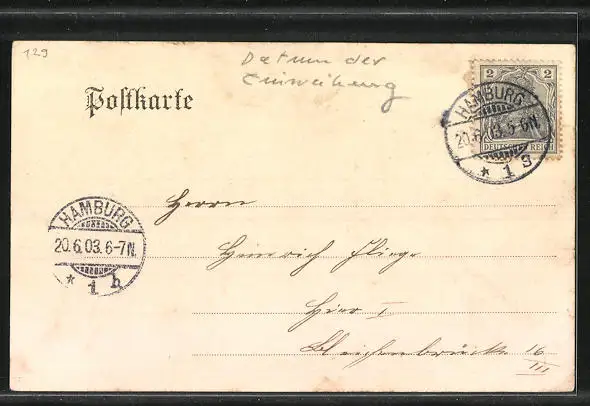 129
Datum der
Einweihung
Postkarte
2 2
DEUTSCHES REICH
HAMBURG
20.6.03.5-6N.
* 1 g
HAMBURG
20.6.03.6-7N.
* 1 h
Herrn
Heinrich Fliege
Hier I
Bleichenbrücke 16
III